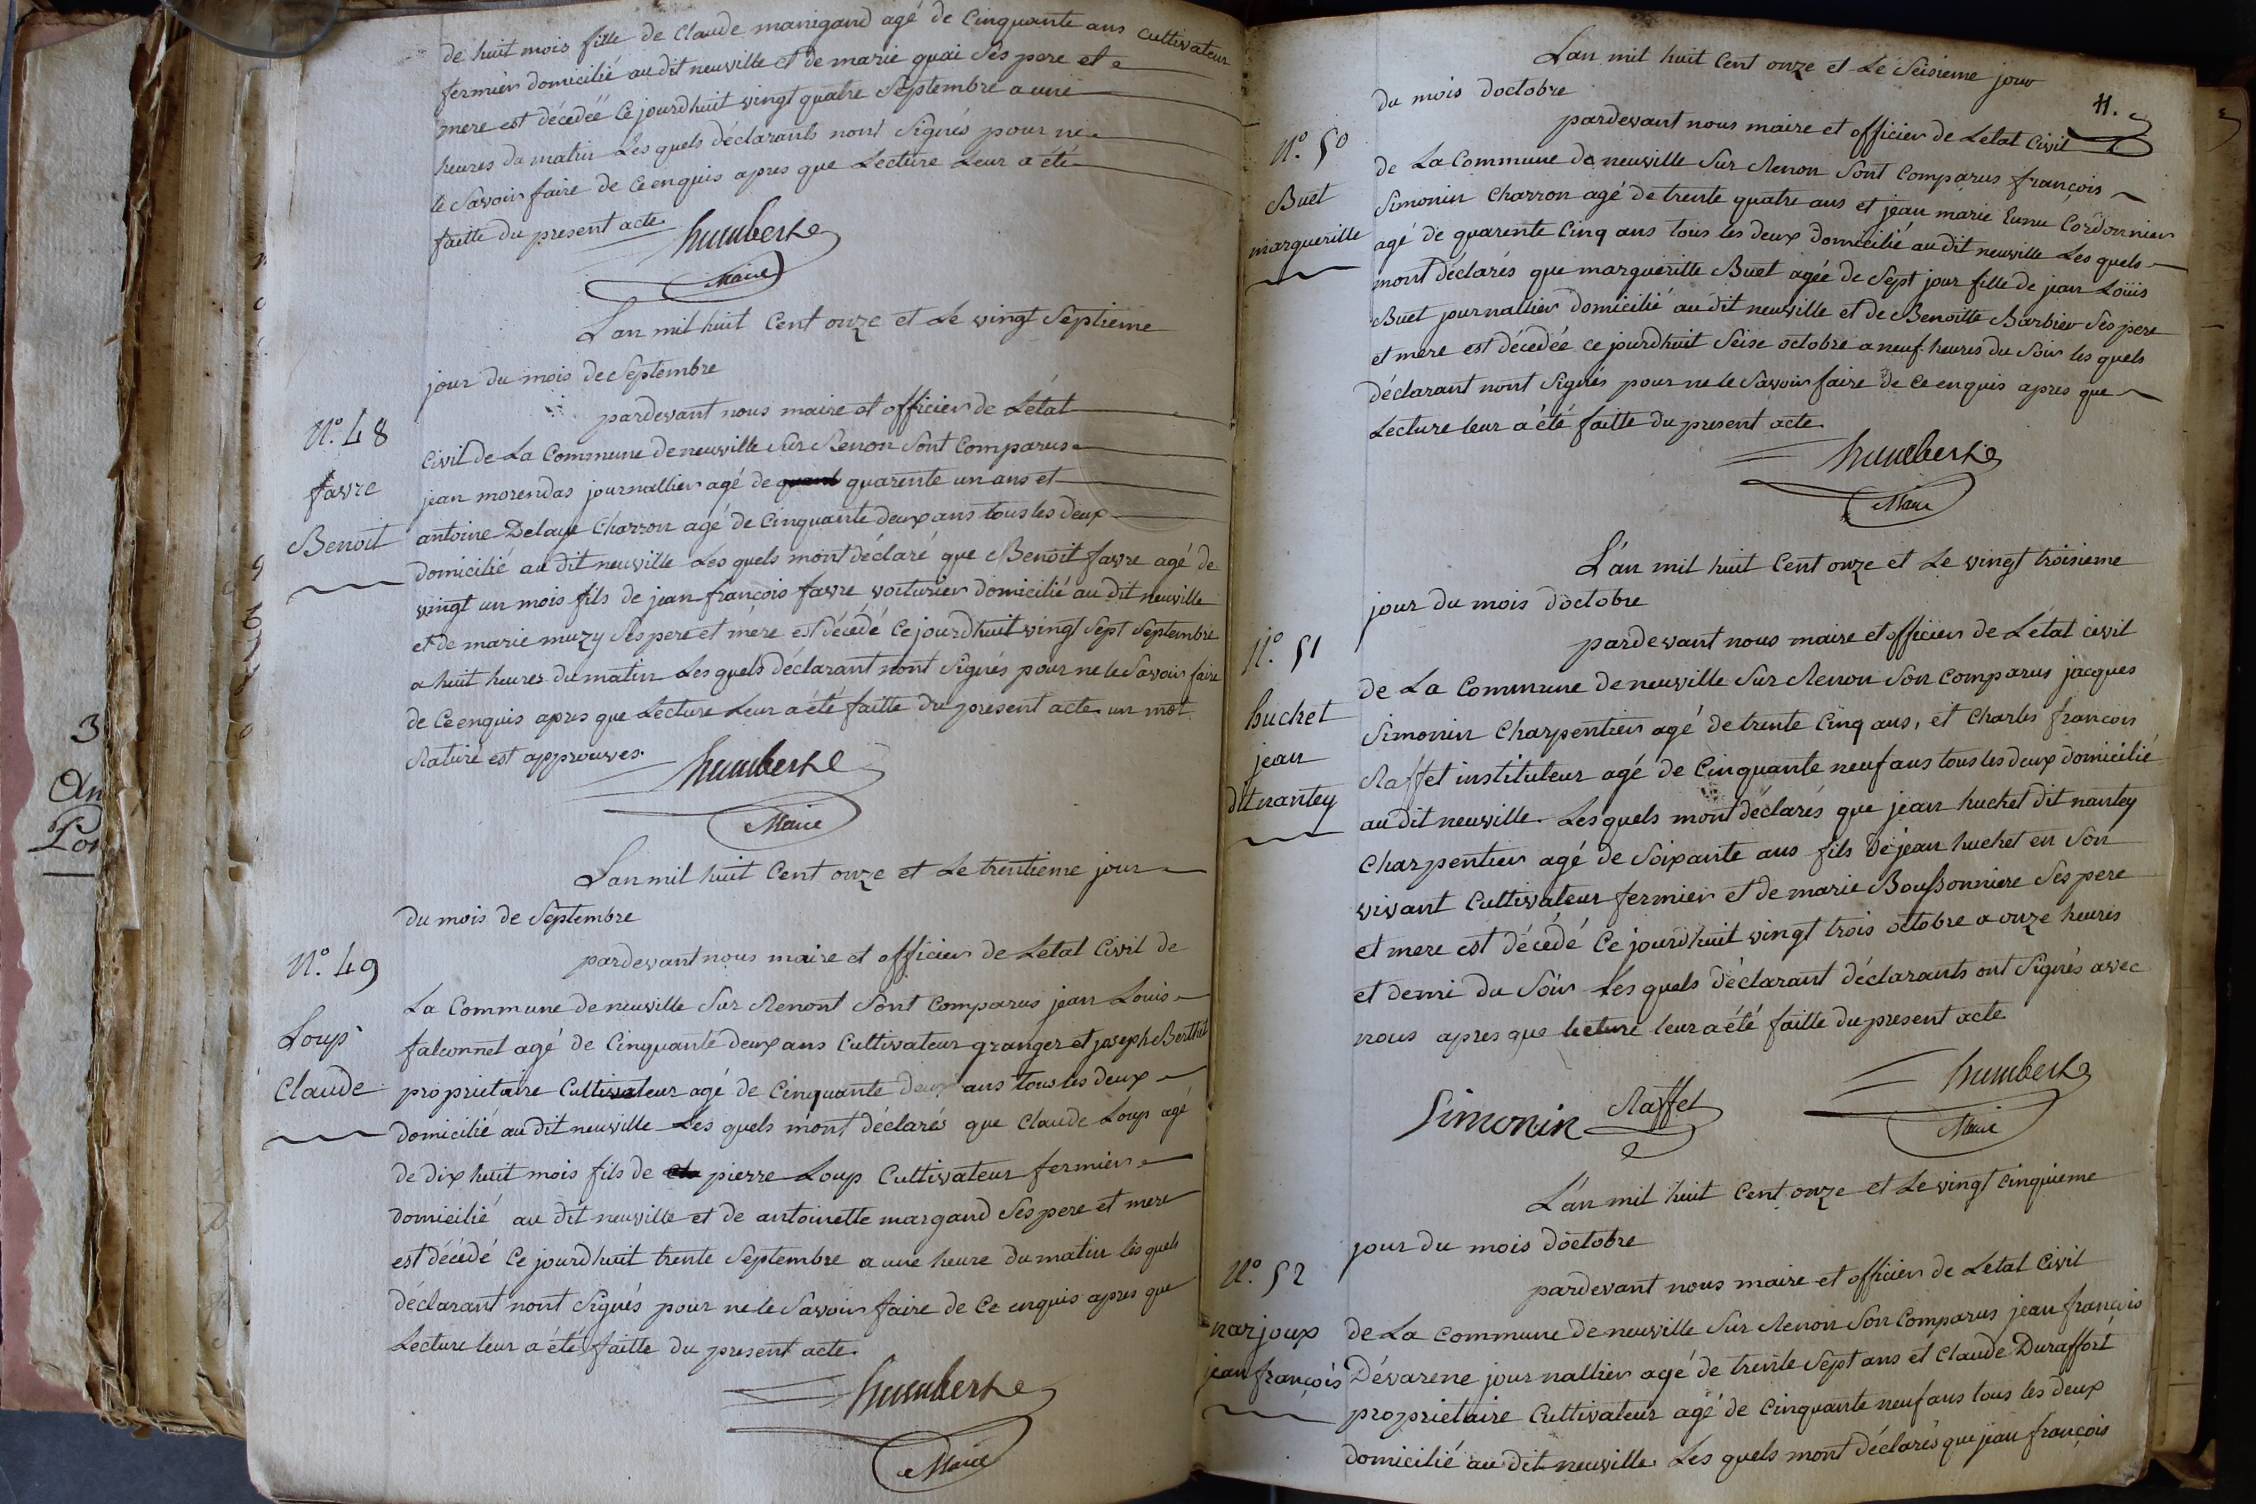 de huit mois fille de Claude manigand agé de Cinquante ans cultivateur
fermier domicilié au dit neuville et de marie quai Ses pere et
mere est décédéé Ce jourdhuit vingt quatre Septembre a une
heures du matin Les quels déclarants nont Signés pour ne
le Savoir faire de Ce enquis apres que Lecture Leur a été
faitte du present acte
humbert
Maire
Lan mil huit Cent onze et Le vingt Septieme
jour du mois de Septembre
pardevant nous maire et officier de Létat
N°. 48
Civil de La Commune de neuville Sur Renon Sont Comparus
favre
jean morendas journallier agé de quarente un ans et
Benoit
antoine Delaye Charron agé de Cinquante deux ans tous les deux
domicilié au dit neuville Les quels mont déclaré que Benoit favre agé de
vingt un mois fils de jean françois favre voiturier domicilié au dit neuville
et de marie muzy Ses pere et mére est décédé Ce jourdhuit vingt Sept Septembre
a huit heures du matin Les quels déclarant nont Signés pour ne le Savoir faire
de Ce enquis apres que Lecture Leur a été faitte du present acte un mot
Raturé est approuvés
humbert
Maire
Lan mil huit Cent onze et Le trentieme jour
du mois de Septembre
pardevant nous maire et officier de Letat Civil de
N°. 49
La Commune de neuville Sur Renont Sont Comparus jean Louis
Loup
falconnet agé de Cinquante deux ans Cultivateur granger et joseph Berthet
Claude
propriétaire Cultivateur agé de Cinquante deux ans tous les deux
domicilié au dit neuville Les quels mont déclarés que Claude Loup agé
de dix huit mois fils de pierre Loup Cultivateur fermier
domicilié au dit neuville et de antoinette margand Ses pere et mere
est décédé Ce jourdhuit trente Septembre a une heure du matin Les quels
déclarant nont Signés pour ne le Savoir faire de Ce enquis apres que
Lecture leur a été faitte du present acte
humbert
Maire
Lan mil huit Cent onze et Le Seisieme jour
du mois doctobre
11.
pardevant nous maire et officier de Létat Civil
N°. 50
de La Commune de neuville Sur Renon Sont Comparus françois
Buet
Simonin Charron agé de trente quatre ans et jean marie Cordonnier
marguerille
agé de quarente Cinq ans tous les deux domicilié au dit neuville Les quels
mont déclarés que margueritte Buet agée de Sept jour fille de jean Loüis
Buet journallier domicilié au dit neuville et de Benoitte Barbier Ses pere
et mere est décédée ce jourdhuit Seise octobre a neuf heures du Soir les quels
déclarant nont Signés pour ne le Savoir faire de Ce enquis apres que
Lecture leur a été faitte du present acte
humbert
Maire
Lan mil huit Cent onze et Le vingt troisieme
jour du mois doctobre
pardevant nous maire et officier de Létat Civil
N°. 51
de La Commune de neuville Sur Renon Son Comparus jacques
huchet
Simonin Charpentier agé de trente Cinq ans, et Charles françois
jean
Raffet instituteur agé de Cinquante neuf ans tous les deux domicilié
dit nantey
au dit neuville Les quels mont déclarés que jean huchet dit nantey
Charpentier agé de Soixante ans fils de jean huchet en Son
vivant Cultivateur fermier et de marie Boussonniere Ses pere
et mere est décédé Ce jourdhuit vingt trois octobre a onze heures
et demi du Soir Les quels déclarant déclarants ont Signés avec
nous apres que lecture leur a été faitte du present acte
humbert
Simonin Raffet
Maire
Lan mil huit Cent onze et Le vingt Cinquieme
jour du mois doctobre
pardevant nous maire et officier de Létat Civil
N°. 52
de La Commune de neuville Sur Renon Son Comparus jean françois
narjoux
jean françois
Dévarene journallier agé de trente Sept ans et Claude Duraffort
proprietaire Cultivateur agé de Cinquante neuf ans tous les deux
domicilié au dit neuville Les quels mont déclarés que jean françois